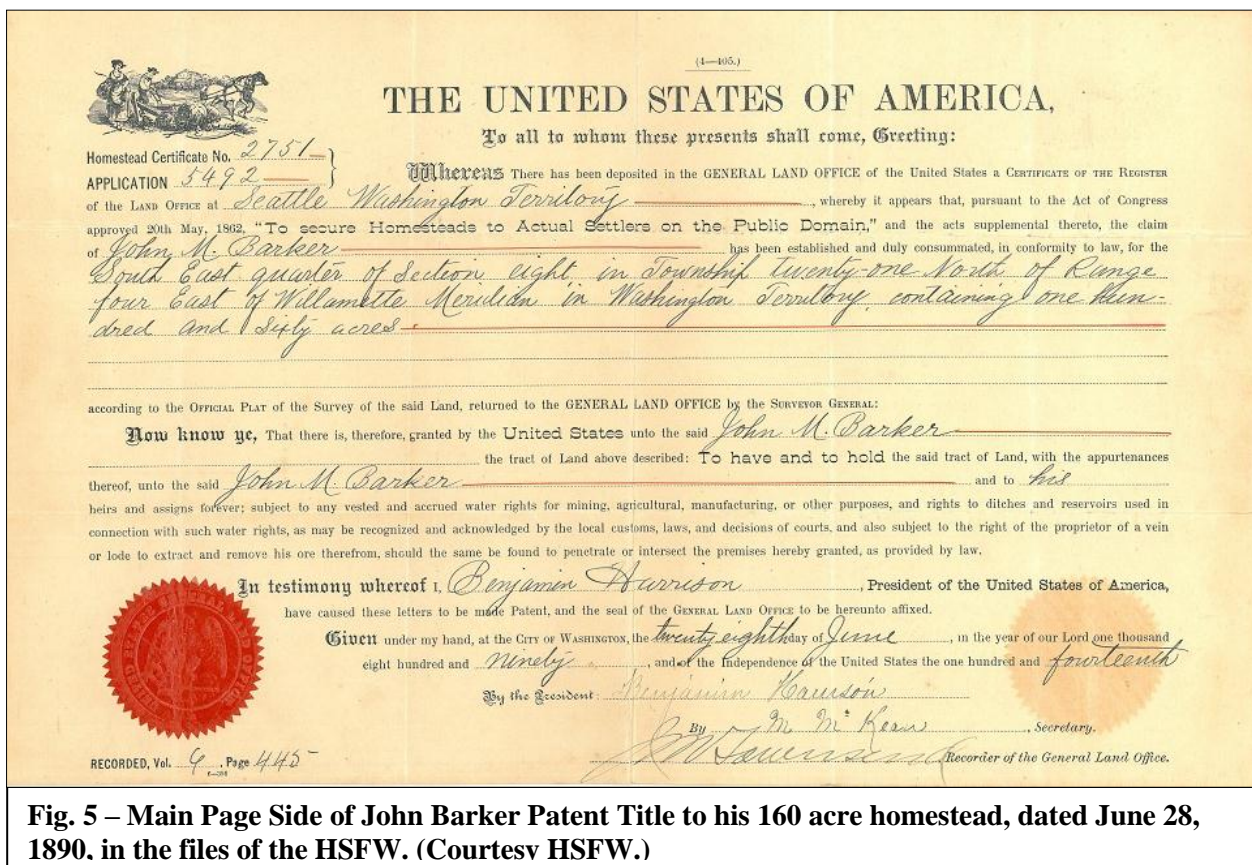 (4—405.)
THE UNITED STATES OF AMERICA,
To all to whom these presents shall come, Greeting:
Homestead Certificate No. 2751
APPLICATION 5492
Whereas There has been deposited in the GENERAL LAND OFFICE of the United States a CERTIFICATE OF THE REGISTER
of the LAND OFFICE at Seattle Washington Territory, whereby it appears that, pursuant to the Act of Congress
approved 20th May, 1862, "To secure Homesteads to Actual Settlers on the Public Domain," and the acts supplemental thereto, the claim
of John M. Barker has been established and duly consummated, in conformity to law, for the
South East quarter of Section eight, in Township twenty-one North of Range
four East of Willamette Meridian in Washington Territory, containing one Hun-
dred and Sixty acres.
according to the OFFICIAL PLAT of the Survey of the said Land, returned to the GENERAL LAND OFFICE by the SURVEYOR GENERAL:
Now know ye, That there is, therefore, granted by the United States unto the said John M. Barker
the tract of Land above described: To have and to hold the said tract of Land, with the appurtenances
thereof, unto the said John M. Barker and to his
heirs and assigns forever; subject to any vested and accrued water rights for mining, agricultural, manufacturing, or other purposes, and rights to ditches and reservoirs used in
connection with such water rights, as may be recognized and acknowledged by the local customs, laws, and decisions of courts, and also subject to the right of the proprietor of a vein
or lode to extract and remove his ore therefrom, should the same be found to penetrate or intersect the premises hereby granted, as provided by law.
In testimony whereof I, Benjamin Harrison, President of the United States of America,
have caused these letters to be made Patent, and the seal of the GENERAL LAND OFFICE to be hereunto affixed.
Given under my hand, at the CITY OF WASHINGTON, the twenty eighth day of June, in the year of our Lord one thousand
eight hundred and ninety, and of the Independence of the United States the one hundred and fourteenth
By the President: Benjamin Harrison
By M. McKean, Secretary.
Recorder of the General Land Office.
RECORDED, Vol. 6, Page 445
Fig. 5 – Main Page Side of John Barker Patent Title to his 160 acre homestead, dated June 28,
1890, in the files of the HSFW. (Courtesy HSFW.)